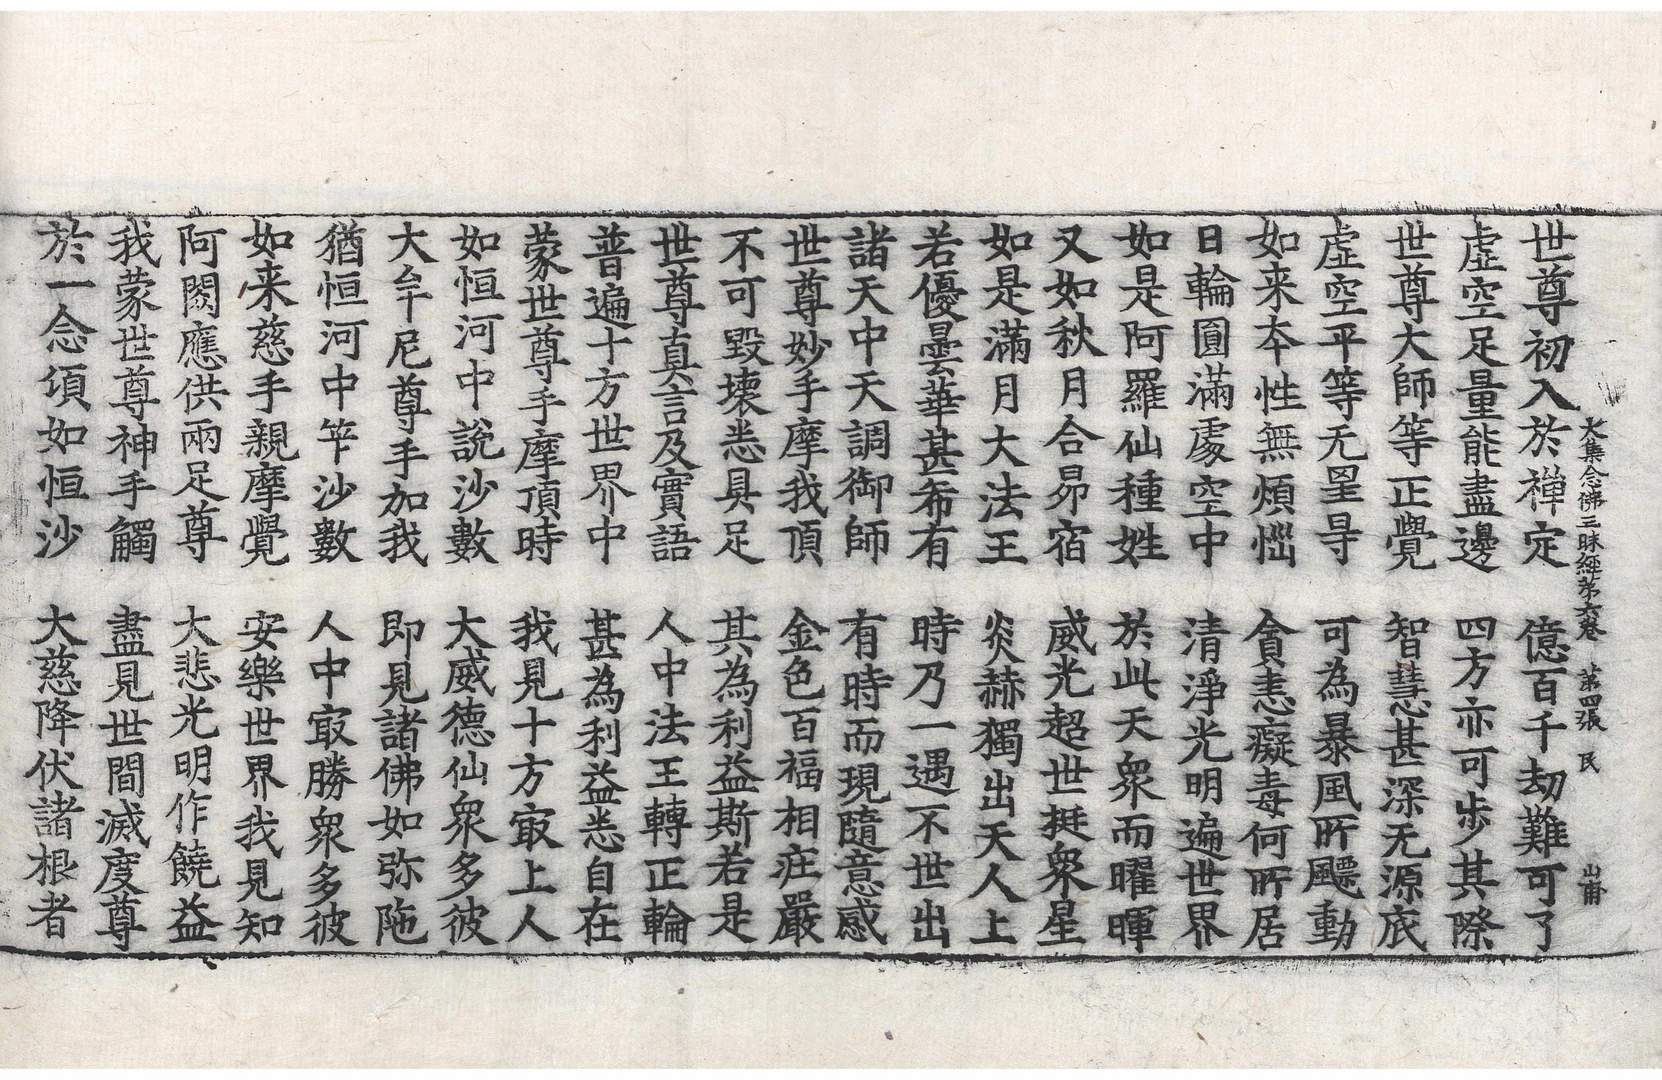 大集念佛三昧經第六卷　第四張　民
世尊初入於禪定　億百千劫難可了
虛空足量能盡邊　四方亦可步其際
世尊大師等正覺　智慧甚深无源底
虛空平等无罣㝵　可為暴風所飃動
如来本性無煩惱　貪恚癡毒何所居
日輪圓滿處空中　清淨光明遍世界
如是阿羅仙種姓　於此天衆而曜暉
又如秋月合昴宿　威光超世挺衆星
如是滿月大法王　炎赫獨出天人上
若優曇華甚希有　時乃一遇不世出
諸天中天調御師　有時而現隨意感
世尊妙手摩我頂　金色百福相庄嚴
不可毀壞悉具足　其為利益斯若是
世尊真言及實語　人中法王轉正輪
普遍十方世界中　甚為利益悉自在
蒙世尊手摩頂時　我見十方㝡上人
如恒河中說沙數　大威德仙衆多彼
大牟尼尊手加我　即見諸佛如弥陁
猶恒河中笇沙數　人中㝡勝衆多彼
如来慈手親摩覺　安樂世界我見知
阿閦應供兩足尊　大悲光明作饒益
我蒙世尊神手觸　盡見世間滅度尊
於一念頃如恒沙　大慈降伏諸根者